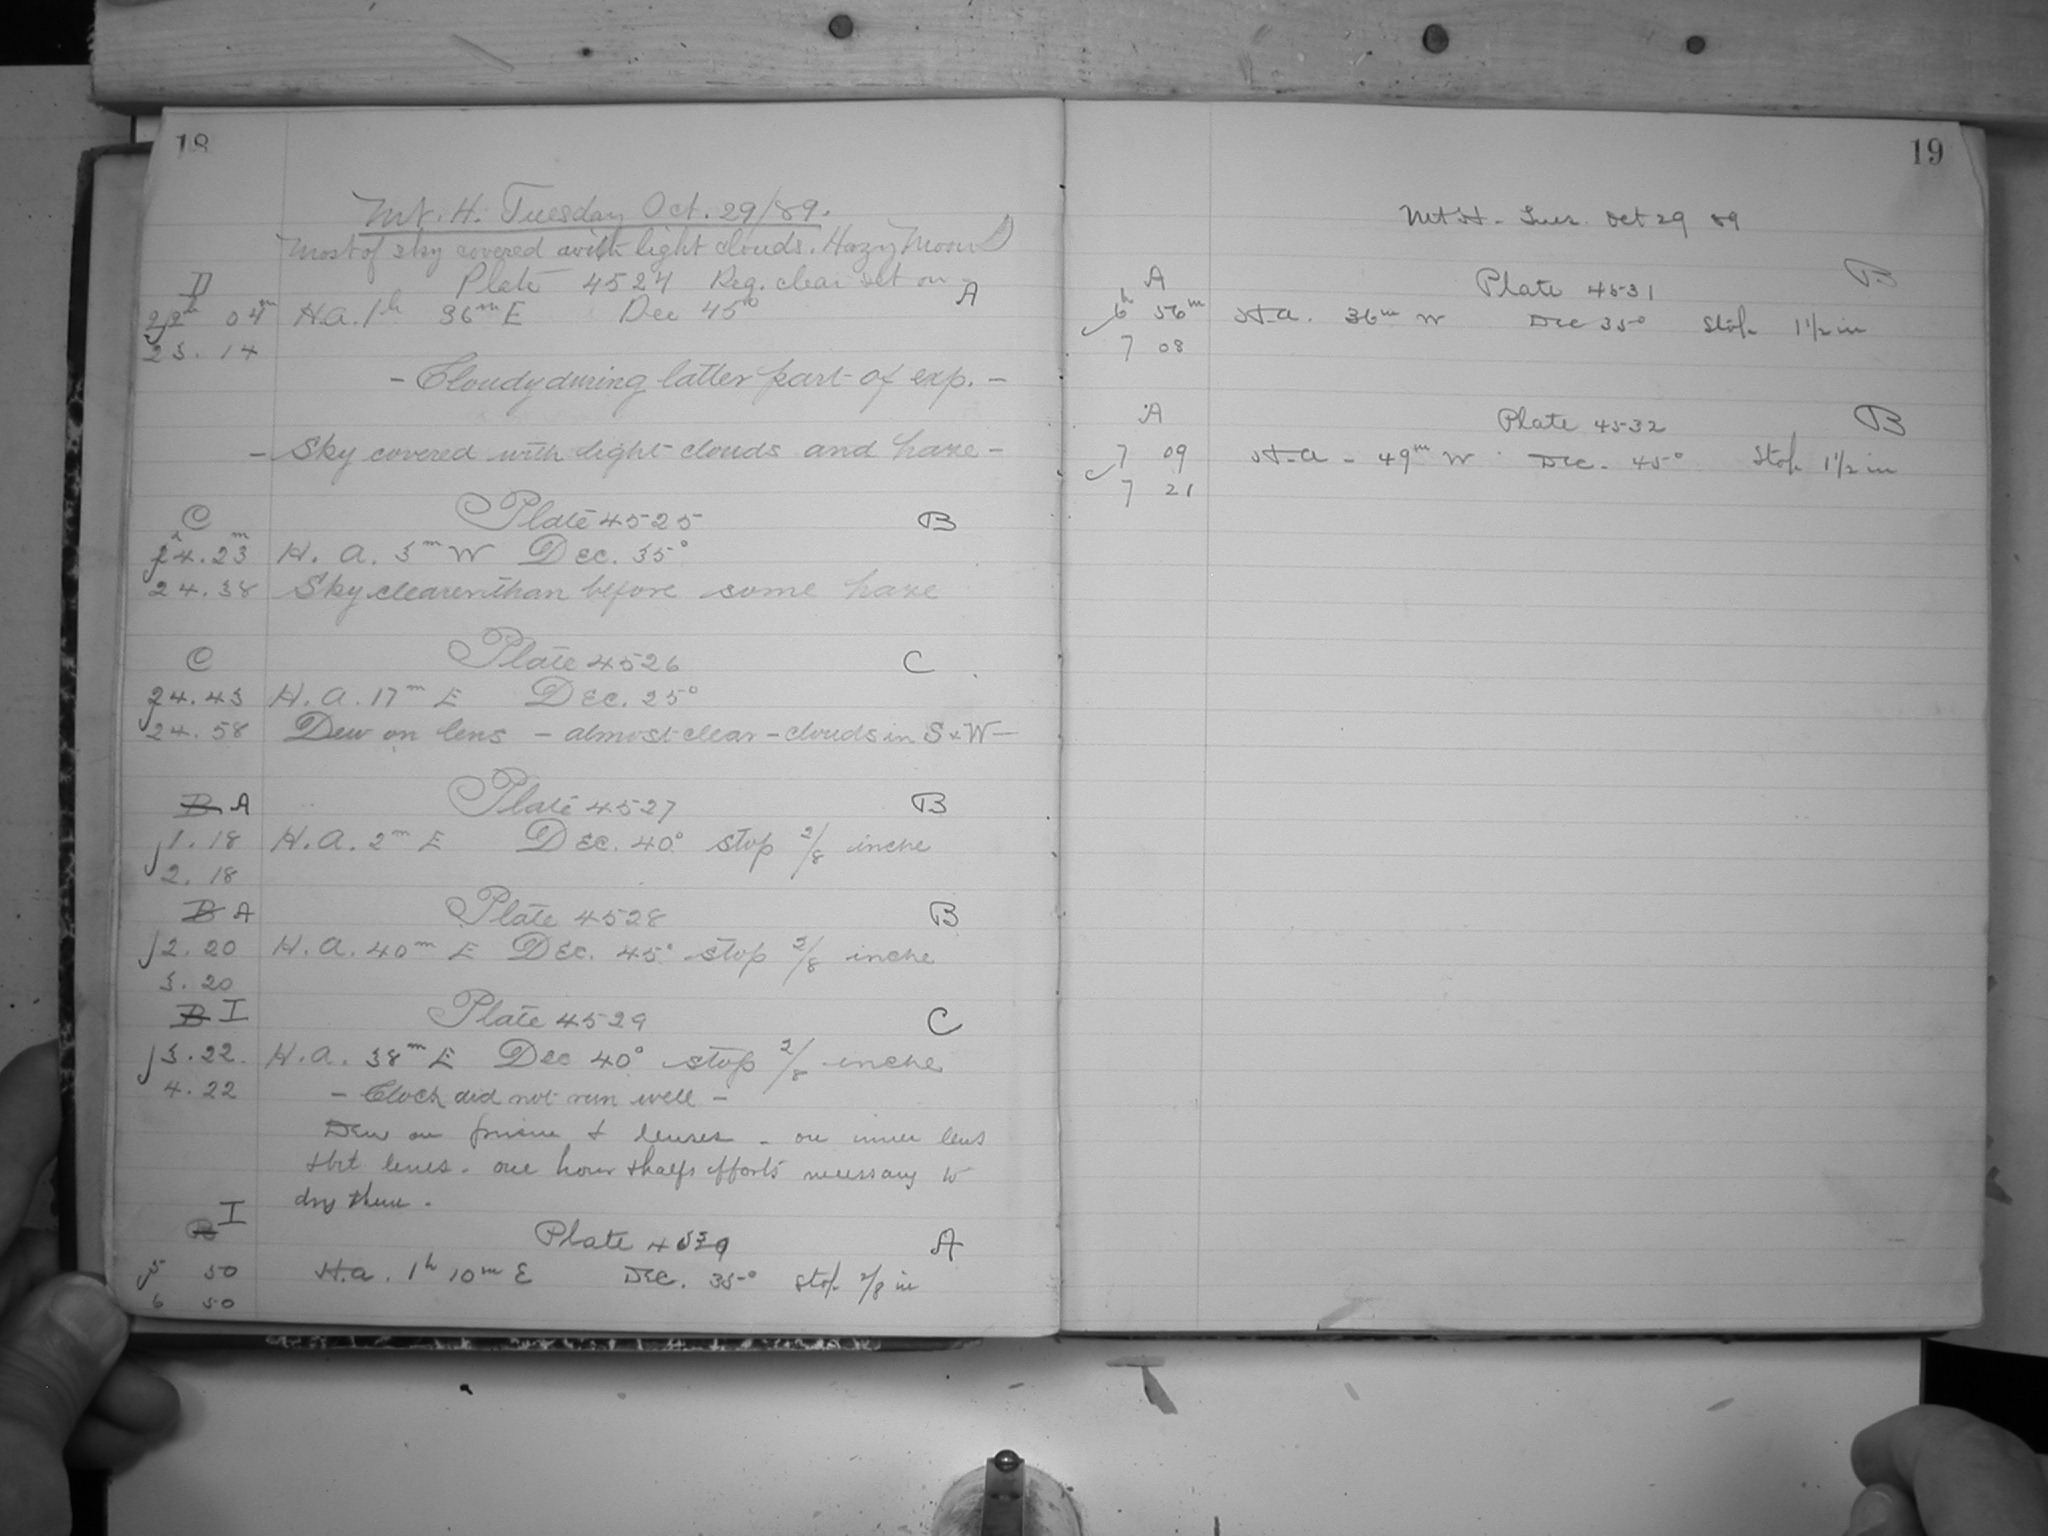 18
Mt. H. Tuesday Oct. 29/89.
Most of sky covered with light clouds. Hazy Moon
D Plate 4524 Reg. clear set on A
22h 04m H.A. 1h 36m E Dec 45°
23.14
- Cloudy during latter part of exp. -
- Sky covered with light clouds and haze -
C Plate 4525 B
24.23m H. A. 3m W Dec. 35°
24.38 Sky clearer than before some haze
C Plate 4526 C
24.43 H. A. 17m E Dec. 25°
24.58 Dew on lens - almost clear - clouds in S & W -
B A Plate 4527 B
1.18 H. A. 2m E Dec. 40° stop 2/8 inche
2.18
B A Plate 4528 B
2.20 H. A. 40m E Dec. 45° stop 2/8 inche
3.20
B I Plate 4529 C
3.22. H. A. 38m E Dec 40° stop 2/8 inche
4.22 - Clock did not run well -
Dew on prism & lenses - on inner lens
lenses. one hour & halfs efforts necessary to
dry them.
B I Plate 4530 A
5 50 H.A. 1h 10m E Dec. 35° stop 2/8 in
6 50
19
Mt H - Tues. Oct 29 89
A Plate 4531 B
6h 56m H.A. 36m W Dec 35° Stop 1 1/2 in
7 08
A Plate 4532 B
7 09 H.A - 49m W Dec. 45° Stop 1 1/2 in
7 21